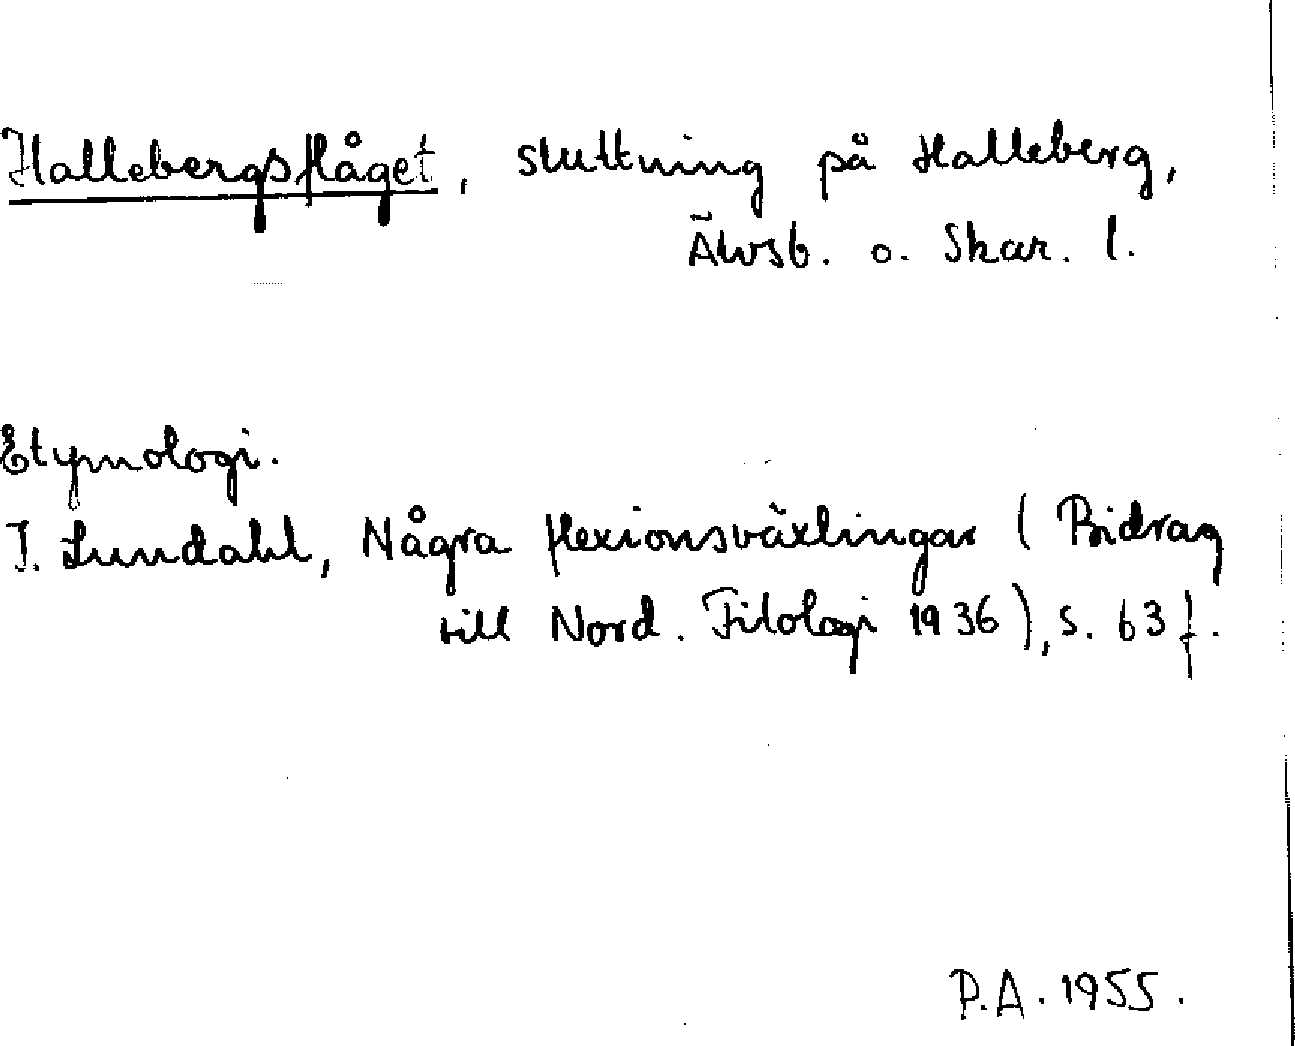 Hallebergsflåget, sluttning på Halleberg,
Älvsb. o. Skar. l.
Etymologi.
I. Lundahl, Några flexionsväxlingar (Bidrag
till Nord. Filologi 1936), s. 63 f.
P.A. 1955.